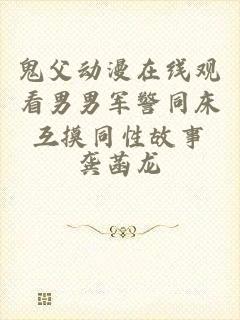 鬼父动漫在线观
看男男军警同床
互摸同性故事
龚菡龙